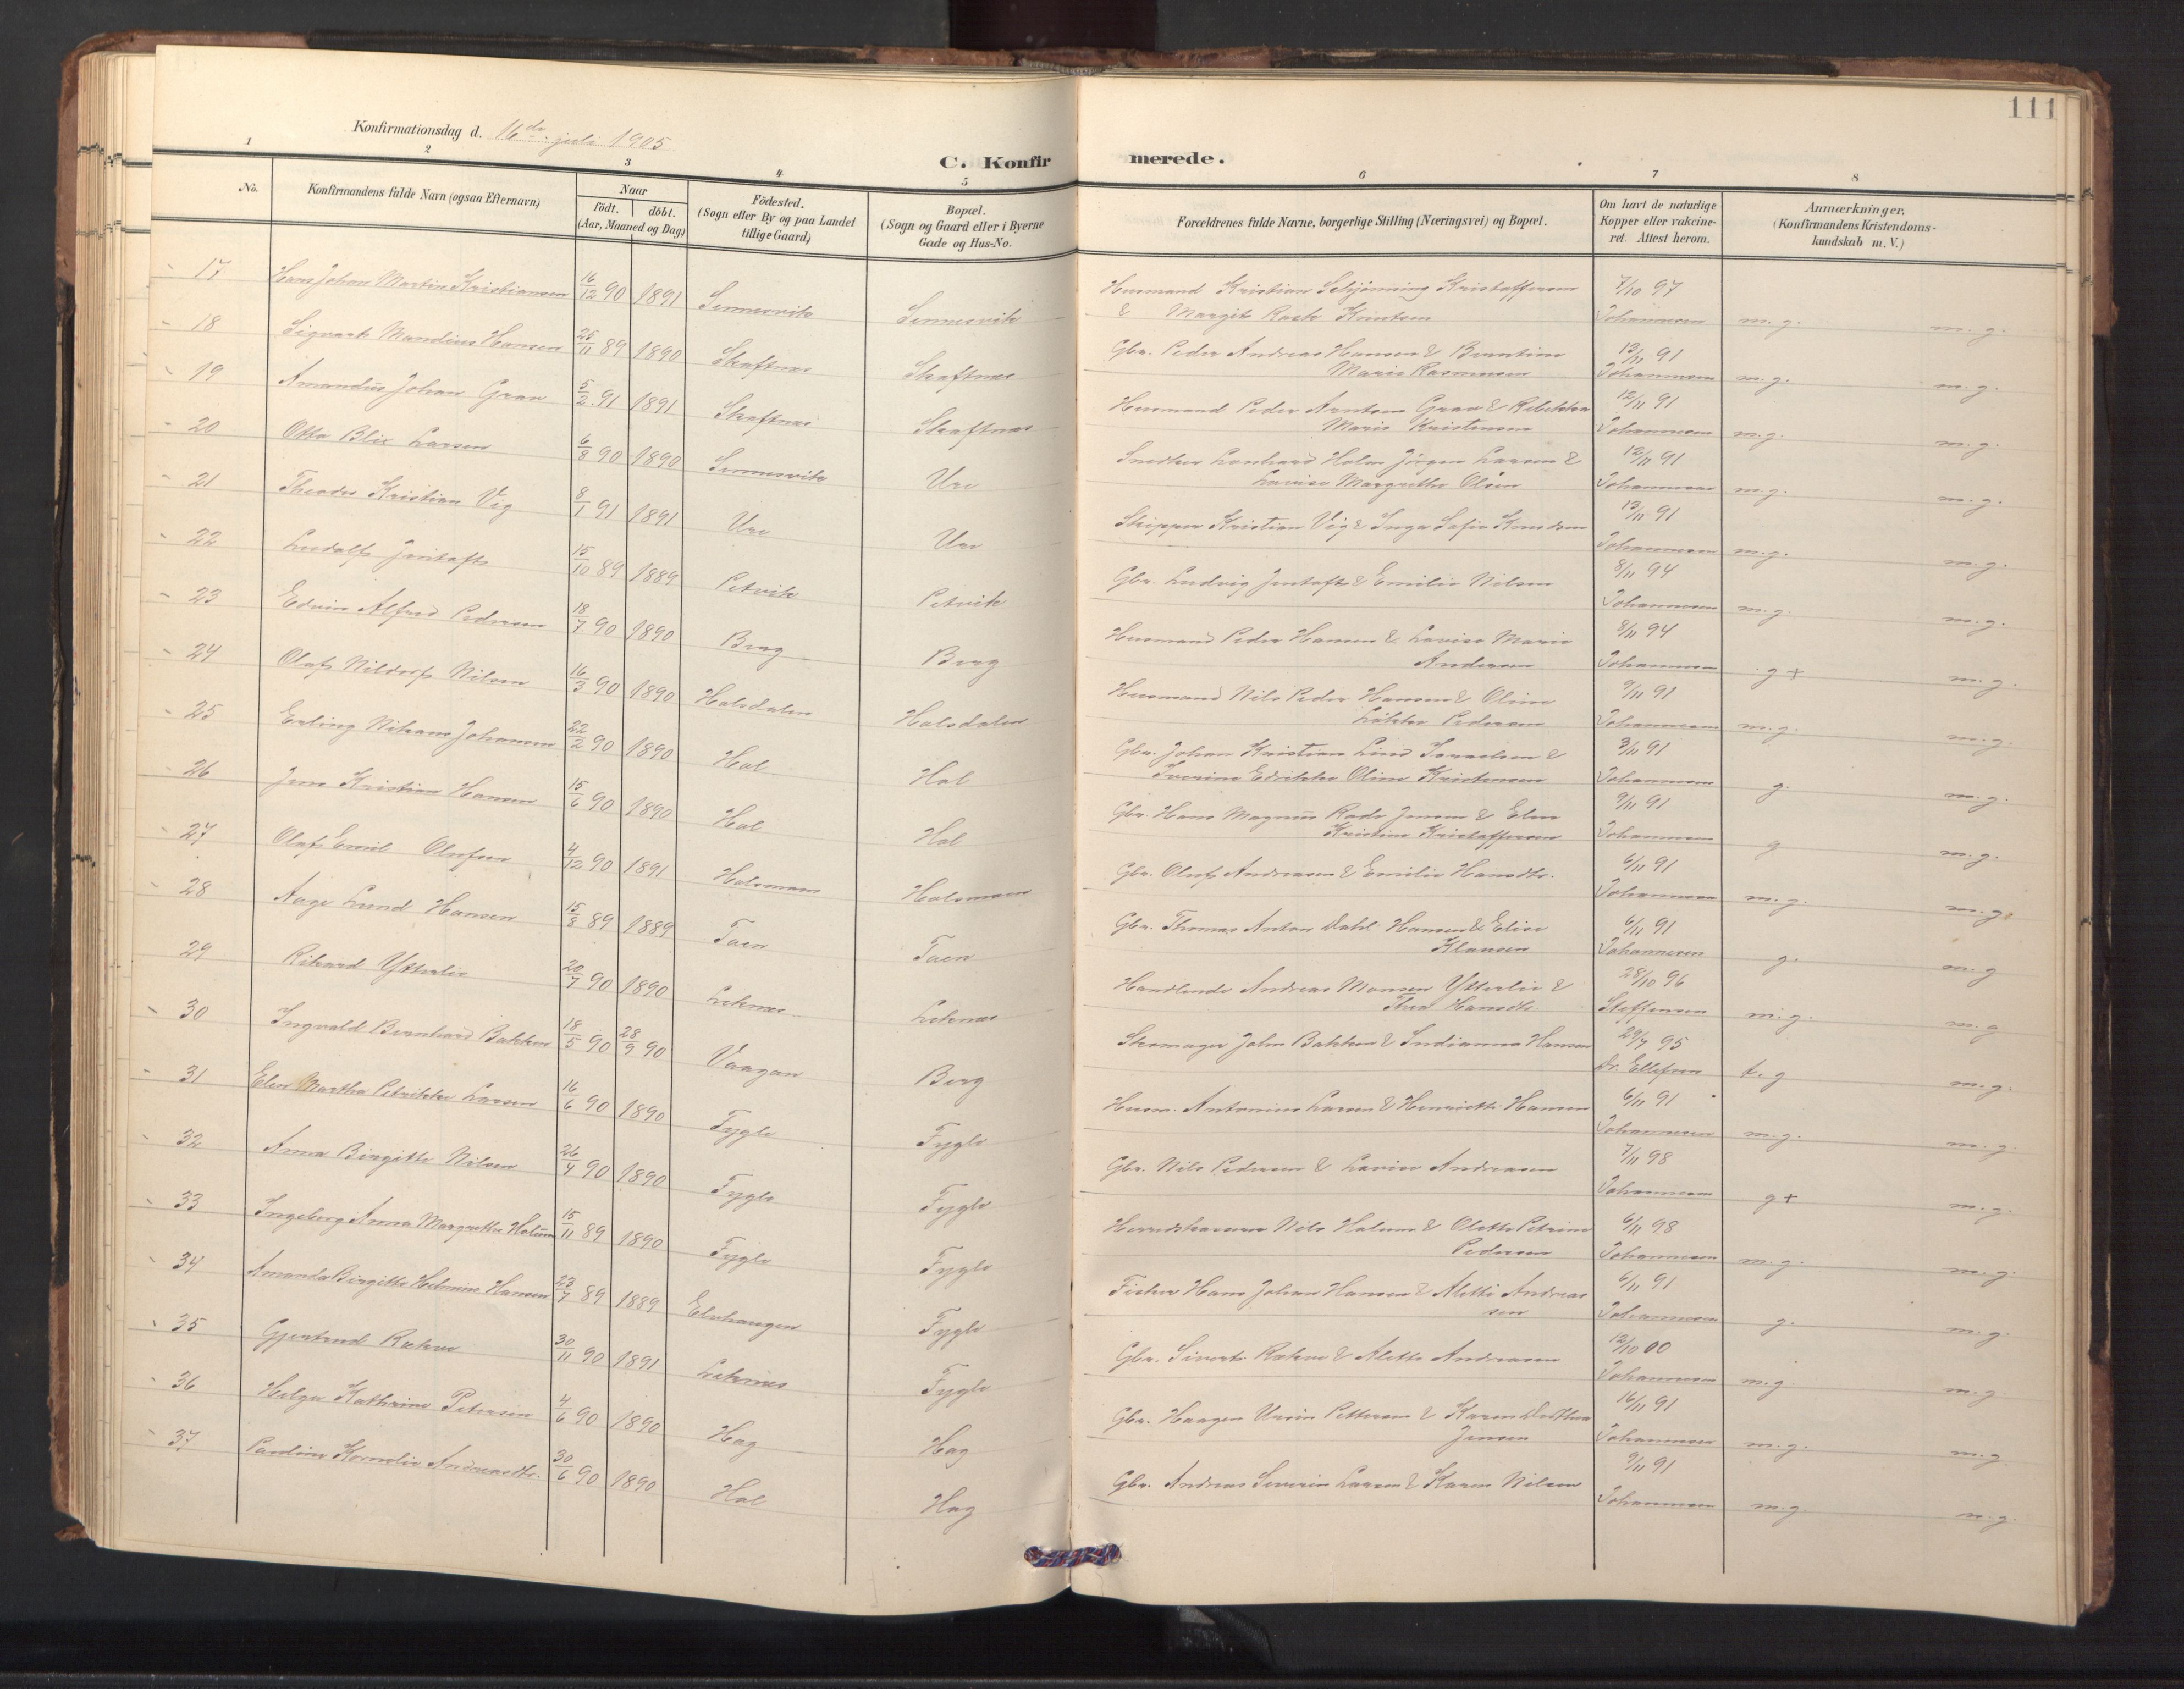 111
Konfirmationsdag d. 16de juli 1905
C. Konfirmerede.
1 2 3 4 5 6 7 8
No. Konfirmandens fulde Navn (ogsaa Efternavn) Naar födt. döbt. (Aar, Maaned og Dag) Födested. (Sogn eller By og paa Landet tillige Gaard) Bopæl. (Sogn og Gaard eller i Byerne Gade og Hus-No. Forældrenes fulde Navne, borgerlige Stilling (Næringsvei) og Bopæl. Om havt de naturlige Kopper eller vakcineret. Attest herom. Anmærkninger. (Konfirmandens Kristendomskundskab m. V.)
17 Hans Johan Martin Kristiansen 16/12 90 1891 Sennesvik Sennesvik Husmand Kristian Schjönning Kristoffersen 7/10 97
& Margit Rask Knutsen Johannesen m.g. m.g.
18 Sigvart Mandius Hansen 25/11 89 1890 Skaftnes Skaftnes Gbr. Peder Andreas Hansen & Berntine 13/11 91
Marie Rasmussen Johannesen m.g. m.g.
19 Amandus Johan Grav 5/2 91 1891 Skaftnes Skaftnes Husmand Peder Arntsen Grav & Rebekka 12/11 91
Marie Kristensen Johannesen m.g. m.g.
20 Otto Blix Larsen 6/8 90 1890 Sennesvik Ure Snedker Lenhard Holm Jörgen Larsen & 12/11 91
Lovise Margrethe Olsen Johannesen m.g. m.g.
21 Theodor Kristian Vig 8/1 91 1891 Ure Ure Skipper Kristian Vig & Inga Sofie Knudsen 13/11 91
Johannesen m.g. m.g.
22 Ludolf Jentoft 15/10 89 1889 Petvik Petvik Gbr. Ludvig Jentoft & Emilie Nilsen 8/11 94
Johannesen m.g. m.g.
23 Edvin Alfred Pedersen 18/7 90 1890 Berg Berg Husmand Peder Hansen & Lovise Marie 8/11 94
Andersen Johannesen g+ m.g.
24 Olaf Nildorf Nilsen 16/3 90 1890 Holsdalen Holsdalen Husmand Nils Peder Hansen & Oline 9/11 91
Lökke Pedersen Johannesen m.g. m.g.
25 Erling Nikans Johansen 22/2 90 1890 Hol Hol Gbr. Johan Kristian Lind Israelsen & 3/11 91
Iverine Edrikke Oline Kristensen Johannesen g. m.g.
26 Jens Kristian Hansen 15/6 90 1890 Hol Hol Gbr. Hans Magnus Rade Jensen & Elen 9/11 91
Kristine Kristoffersen Johannesen g m.g.
27 Olaf Emil Olufsen 4/12 90 1891 Holsmoen Holsmoen Gbr. Oluf Andreasen & Emilie Hansdtr. 6/11 91
Johannesen m.g. m.g.
28 Aage Lund Hansen 15/8 89 1889 Taen Taen Gbr. Thomas Anton Dahl Hansen & Elise 6/11 91
Klausen Johannesen g. m.g
29 Rikard Ytterlie 20/7 90 1890 Leknes Leknes Handlende Andreas Monsen Ytterlie & 28/10 96
Thea Hansdtr. Steffensen m.g. m.g
30 Ingvald Bernhard Bakken 18/5 90 28/9 90 Vaagan Berg Skomager John Bakken & Indianna Hansen 29/7 95
Dr. Ellefsen t.g m.g.
31 Elen Martha Petrikke Larsen 16/6 90 1890 Fygle Fygle Husm. Antonius Larsen & Henriette Hansen 6/11 91
Johannesen m.g. m.g.
32 Anna Birgitte Nilsen 26/4 90 1890 Fygle Fygle Gbr. Nils Pedersen & Lovise Andreasen 7/11 98
Johannesen g+ m.g.
33 Ingeborg Anna Margrethe Holum 15/11 89 1890 Fygle Fygle Herredskasserer Nils Holum & Olette Petrine 6/11 98
Pedersen Johannesen m.g. m.g.
34 Amanda Birgitte Helmine Hansen 23/7 89 1889 Elvhaugen Fygle Fisker Hans Johan Hansen & Alette Andreas 6/11 91
sen Johannesen g. m.g.
35 Gjertrud Rækne 30/11 90 1891 Leknes Fygle Gbr. Sivert Rækne & Alette Andreasen 12/10 00
Johannesen m.g m.g
36 Helga Kathrine Petersen 4/6 90 1890 Hag Hag Gbr. Haagen Ursin Pettersen & Karen Dorthea 16/11 91
Jensen Johannesen m.g. m.g
37 Pauline Kornelie Andreasdtr. 30/6 90 1890 Hol Hag Gbr. Andreas Severin Larsen & Karen Nilsen 9/11 91
Johannesen m.g m.g.